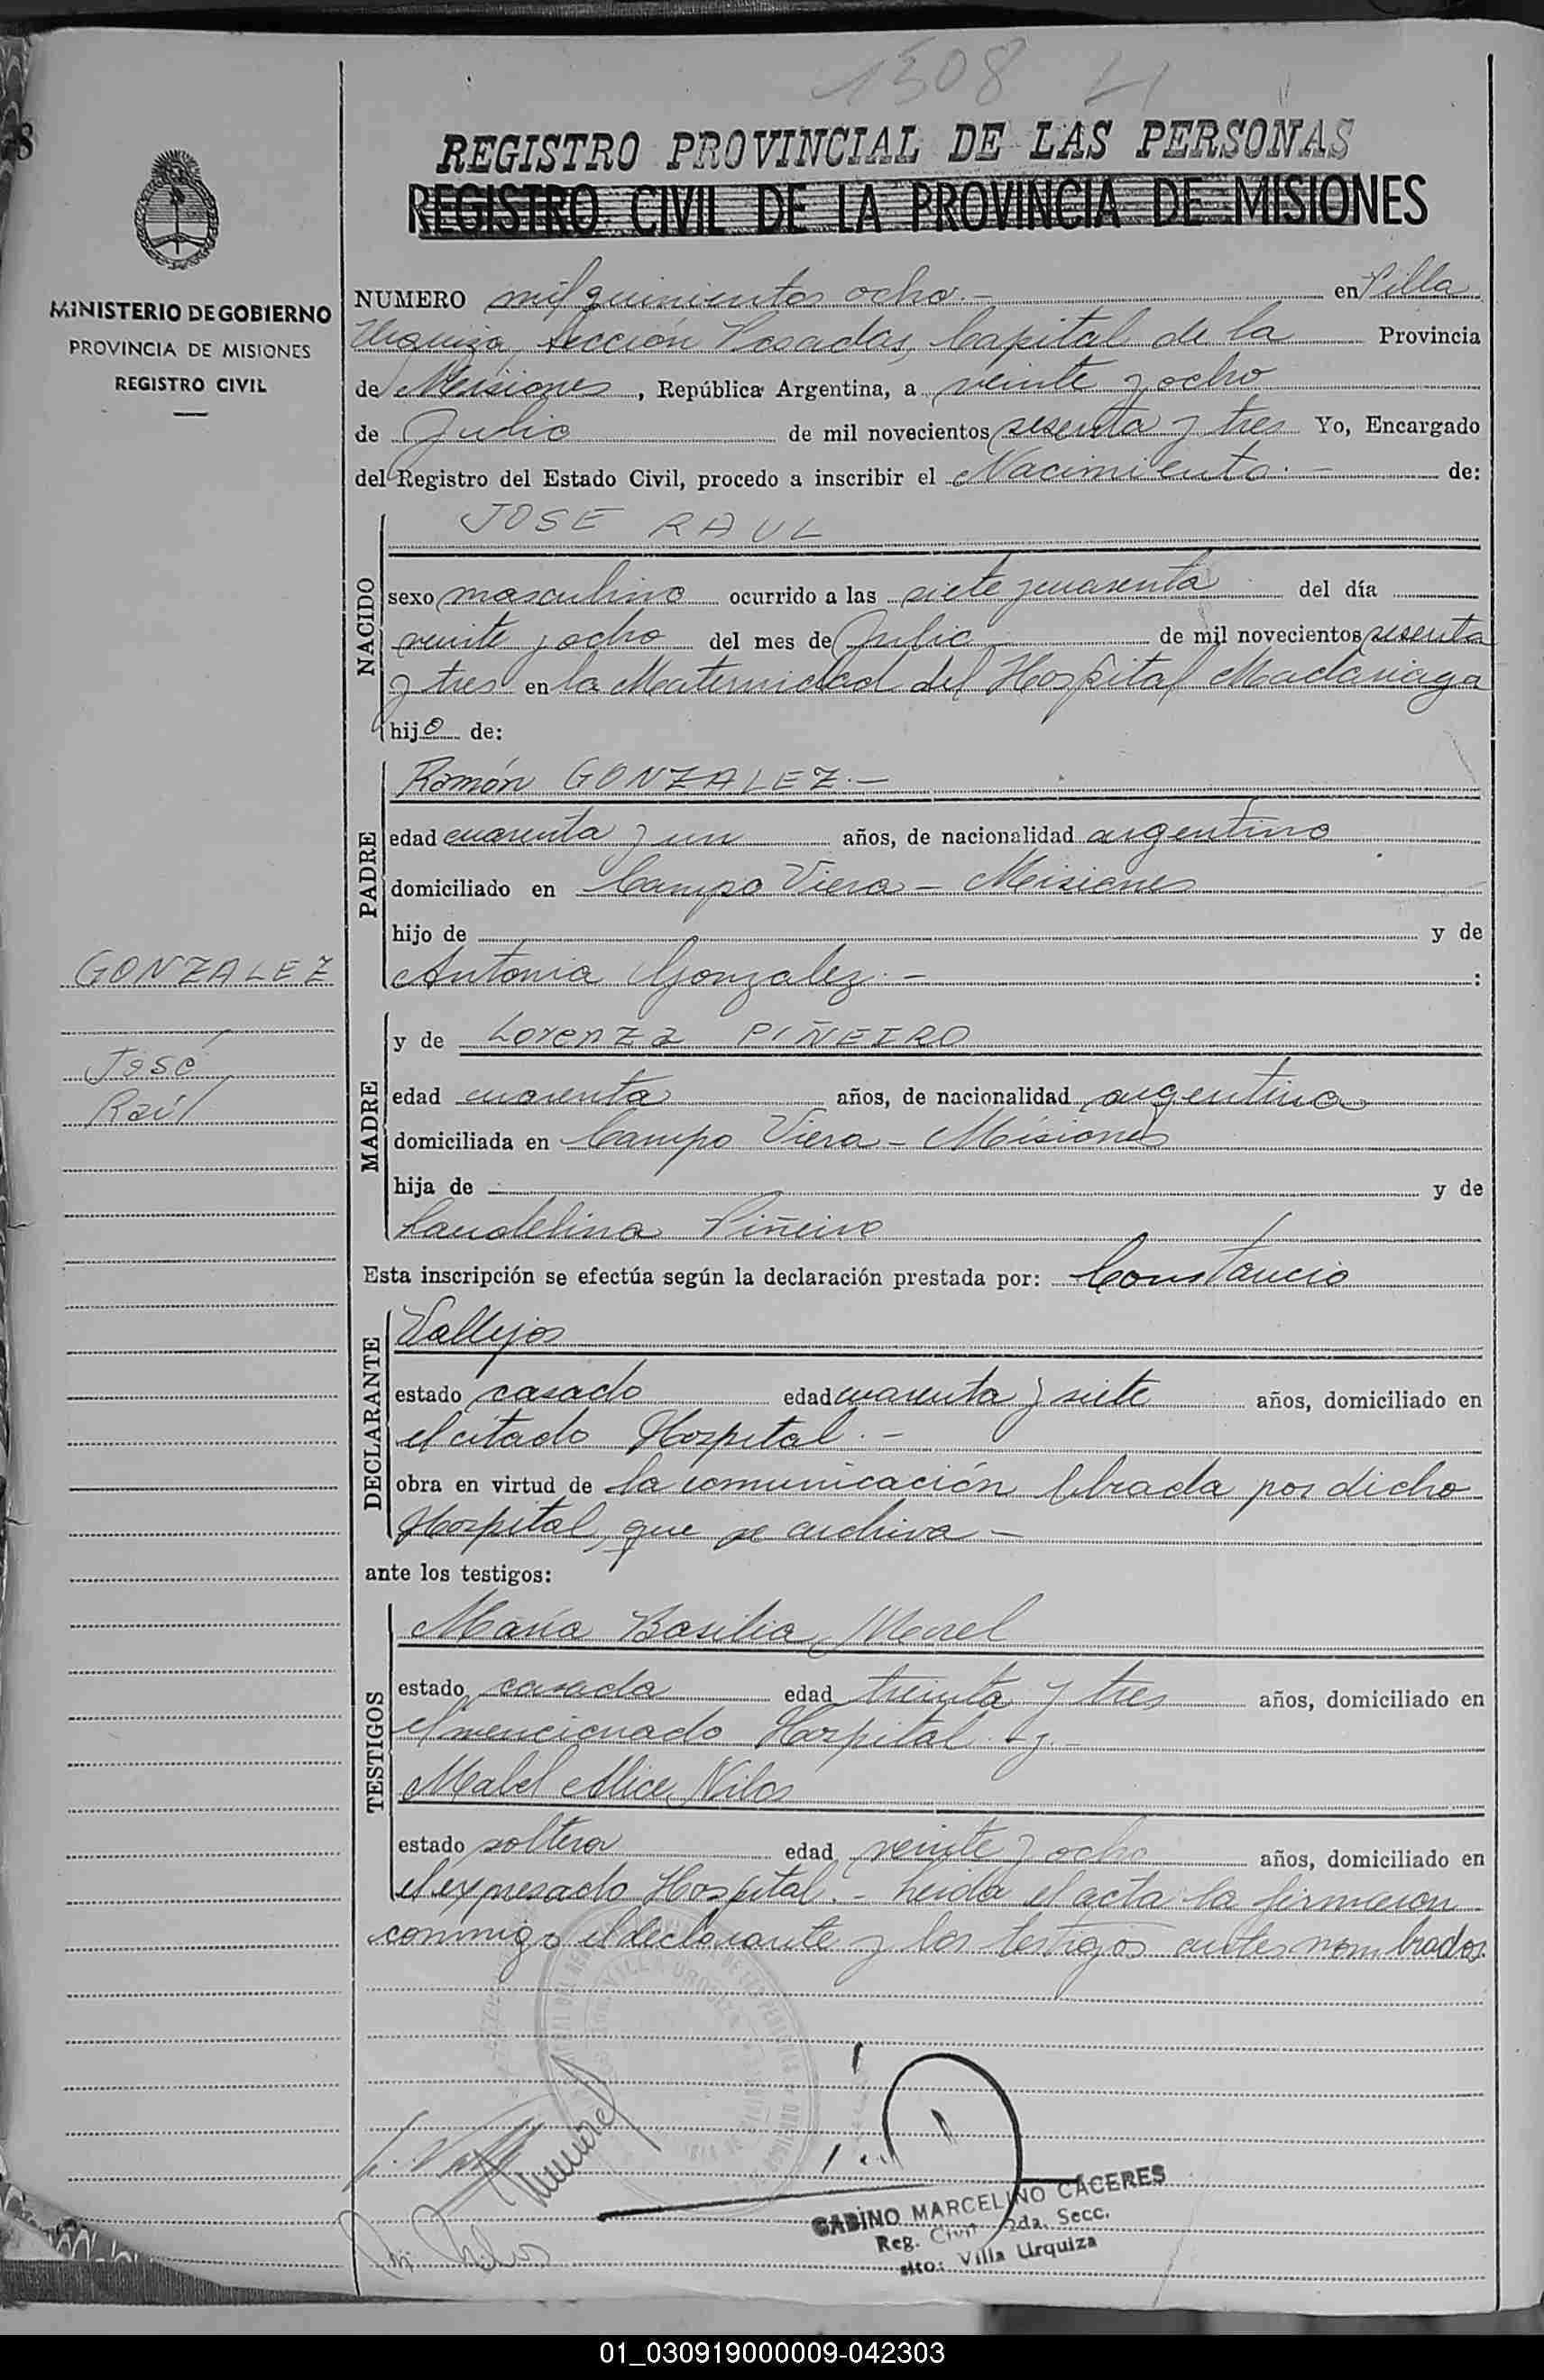 1508
REGISTRO PROVINCIAL DE LAS PERSONAS
REGISTRO CIVIL DE LA PROVINCIA DE MISIONES
MINISTERIO DE GOBIERNO
PROVINCIA DE MISIONES
REGISTRO CIVIL
NUMERO mil quinientos ocho.- en Villa
Urquiza, Sección Posadas, Capital de la Provincia
de Misiones, República Argentina, a veinte y ocho
de Julio de mil novecientos sesenta y tres Yo, Encargado
del Registro del Estado Civil, procedo a inscribir el Nacimiento.- de:
NACIDO
JOSE RAUL
sexo masculino ocurrido a las siete y cuarenta del día
veinte y ocho del mes de Julio de mil novecientos sesenta
y tres en la Maternidad del Hospital Madariaga
hijo de:
PADRE
Ramón GONZALEZ.-
edad cuarenta y un años, de nacionalidad argentino
domiciliado en Campo Viera - Misiones
hijo de y de
Antonia Gonzalez.- :
GONZALEZ
José
Raúl
MADRE
y de Lorenza PIÑEIRO
edad cuarenta años, de nacionalidad argentina
domiciliada en Campo Viera - Misiones
hija de y de
Laudelina Piñeiro
Esta inscripción se efectúa según la declaración prestada por: Constancio
DECLARANTE
Vallejos
estado casado edad cuarenta y siete años, domiciliado en
el citado Hospital.-
obra en virtud de la comunicación librada por dicho
Hospital, que se archiva -
ante los testigos:
TESTIGOS
María Basilia Morel
estado casada edad treinta y tres años, domiciliado en
el mencionado Hospital.- y.-
Mabel Alice Nilos
estado soltera edad veinte y ocho años, domiciliado en
el expresado Hospital.- Leída el acta la firmaron
conmigo el declarante y los testigos antes nombrados.
VILLA URQUIZA
GABINO MARCELINO CÁCERES
Reg. Civil 2da. Secc.
Villa Urquiza
01_030919000009-042303